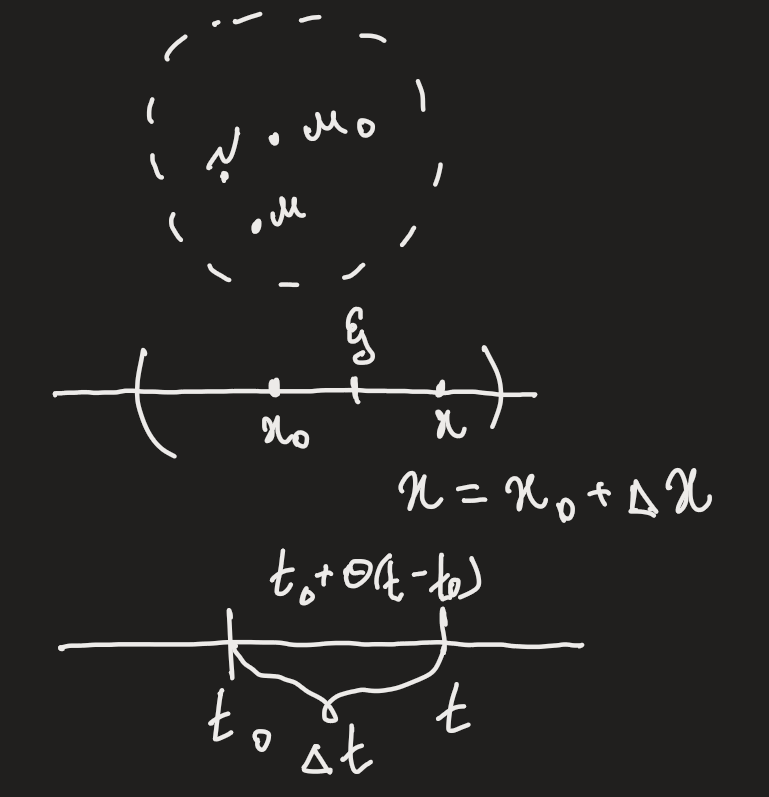 N . M₀
. M
ξ
x₀ x
x = x₀ + Δx
t₀ + Θ(t - t₀)
t₀ Δt t